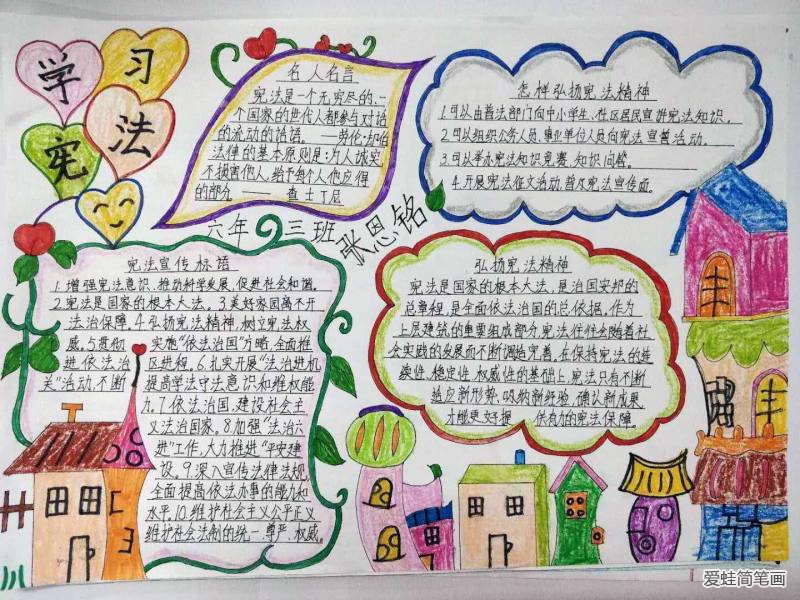 学习
宪法
名人名言
宪法是一个无穷尽的、一
个国家的世代人都参与对话
的流动的话语。——劳伦·却伯
法律的基本原则是:为人诚实
不损害他人,给予每个人他应得
的部分 —— 查士丁尼
怎样弘扬宪法精神
1.可以由普法部门向中小学生、社区居民宣讲宪法知识。
2.可以组织公务人员、事业单位人员向宪法宣誓活动。
3.可以举办宪法知识竞赛、知识问答。
4.开展宪法征文活动,普及宪法宣传面。
六年 三班 张恩铭
宪法宣传标语
1.增强宪法意识、推动科学发展、促进社会和谐。
2.宪法是国家的根本大法。3.美好家园离不开
法治保障。4.弘扬宪法精神 树立宪法权
威。5.贯彻 实施“依法治国”方略,全面推
进依法治 区进程。6.扎实开展“法治进机
关”活动,不断 提高学法中法意识和维权能
力。7.依法治国,建设社会主
义法治国家。8.加强“法治六
进”工作,大力推进“平安建
设。9.深入宣传法律法规
全面提高依法办事的能力和
水平.10.维护社会主义公平正义
维护社会法制的统一、尊严、权威。
弘扬宪法精神
宪法是国家的根本大法,是治国安邦的
总章程,是全面依法治国的总依据。作为
上层建筑的重要组成部分,宪法往往会随着社
会实践的发展而不断调适完善。在保持宪法的连
续性、稳定性、权威性的基础上,宪法只有不断
适应新形势、吸纳新经验、确认新成果,
才能更好提 供有力的宪法保障。
爱蛙简笔画